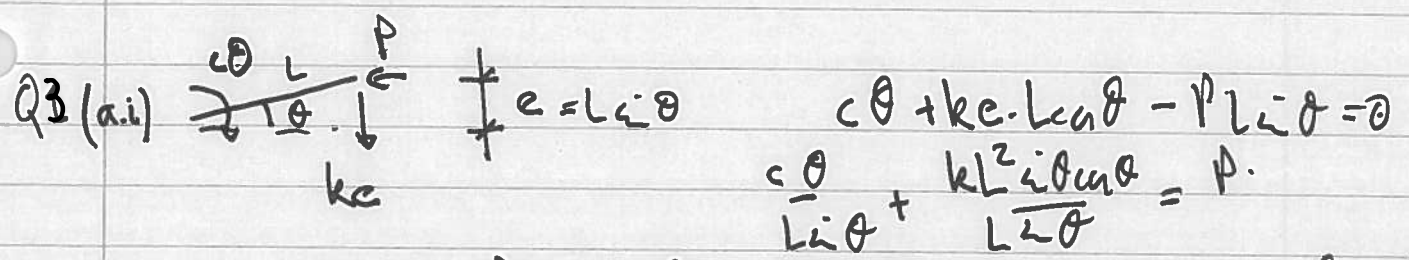 Q3 (a.i) cθ L θ P ke e = L sin θ cθ + ke. L cos θ - P L sin θ = 0
cθ / L sin θ + kL² sin θ cos θ / L sin θ = P.